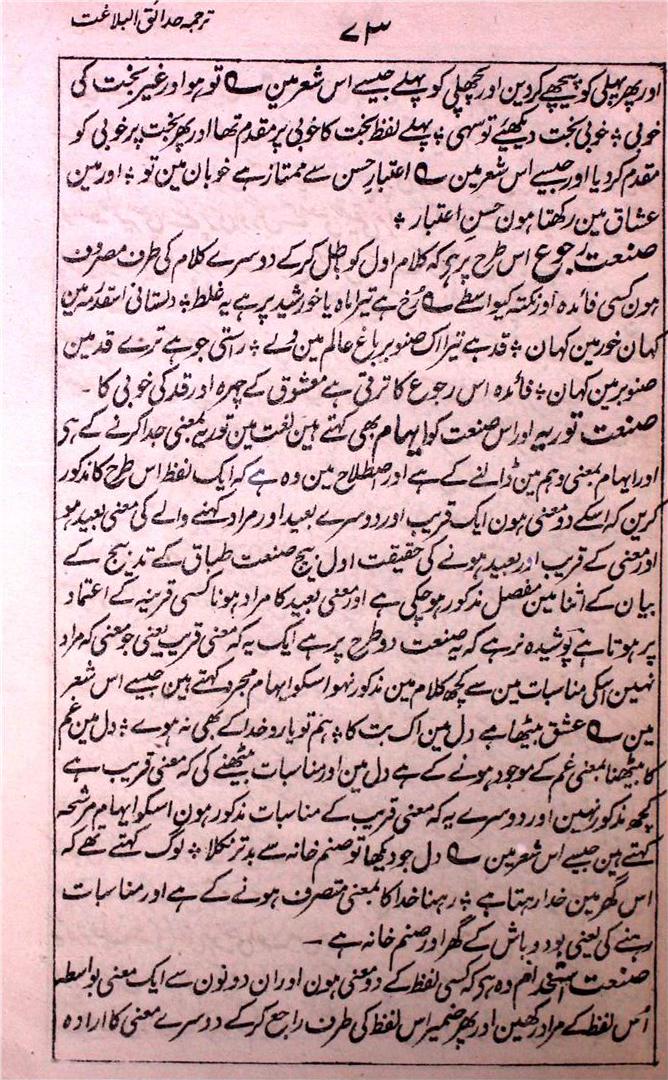 ترجمہ حدائق البلاغت
۷۳
اور پھر پہلی کو پیچھے کردین اور پچھلی کو پہلے جیسے اس شعر مین ؎ تو ہو اور غیر بخت کی
خوبی ؞ خوبی بخت دیکھئے تو سہی ؞ پہلے لفظ بخت کا خوبی پر مقدم تھا اور پھر بخت پر خوبی کو
مقدم کردیا اور جیسے اس شعر مین ؎ اعتبارِ حسن سے ممتاز ہے خوبان مین تو ؞ اور مین
عشاق مین رکھتا ہون حسنِ اعتبار ؞
صنعت رجوع اس طرح پر ہی کہ کلام اول کو باطل کرکے دوسرے کلام کی طرف مصروف
ہون کسی فائدہ اور نکتہ کیواسطے ؎ رخ ہے تیرا ماہ یا خورشید پر ہے یہ غلط ؞ دلستانی استقدر مہ مین
کہان خور مین کہان ؞ قد ہے تیرا اک صنوبر باغ عالم مین ولے ؞ راستی جو ہے ترے قد مین
صنوبر مین کہان ؞ فائدہ اس رجوع کا ترقی ہے معشوق کے چہرہ اور قد کی خوبی کا ۔
صنعت توریہ اور اس صنعت کو ایہام بھی کہتے ہین لغت مین توریہ بمعنی جدا کرنے کے ہی
اور ایہام بمعنی وہم مین ڈالنے کے ہے اور اصطلاح مین وہ ہے کہ ایک لفظ اس طرح کا مذکور
کرین کہ اسکے دو معنی ہون ایک قریب اور دوسرے بعید اور مراد کہنے والے کی معنی بعید ہو
اور معنی کے قریب اور بعید ہونے کی حقیقت اول بیچ صنعت طباق کے تدبیج کے
بیان کے اثنا مین مفصل مذکور ہوچکی ہے اور معنی بعید کا مراد ہونا کسی قرینہ کے اعتماد
پر ہوتا ہے پوشیدہ نرہے کہ یہ صنعت دو طرح پر ہے ایک یہ کہ معنی قریب یعنی جو معنی کہ مراد
نہین اسکی مناسبات مین سے کچھ کلام مین مذکور نہو اسکو ایہام مجرد کہتے ہین جیسے اس شعر
مین ؎ عشق بیٹھا ہے دل مین اک بت کا ؞ ہم تو یارو خدا کے بھی نہ ہوے ؞ دل مین غم
کا بیٹھنا بمعنی غم کے موجود ہونے کے ہے دل مین اور مناسبات بیٹھنے کی کہ معنی قریب ہے
کچھ مذکور نہین اور دوسرے یہ کہ معنی قریب کے مناسبات مذکور ہون اسکو ایہام مرشحہ
کہتے ہین جیسے اس شعر مین ؎ دل جو دیکھا تو صنم خانہ سے بدتر نکلا ؞ لوگ کہتے تھے کہ
اس گھر مین خدا رہتا ہے ؞ رہنا خدا کا بمعنی متصرف ہونے کے ہے اور مناسبات
رہنے کی یعنی بود و باش کے گھر اور صنم خانہ ہے ۔
صنعت استخدام وہ ہی کہ کسی لفظ کے دو معنی ہون اور ان دونون سے ایک معنی بواسطہ
اس لفظ کے مراد رکھین اور پھر ضمیر اس لفظ کی طرف راجع کرکے دوسرے معنی کا ارادہ